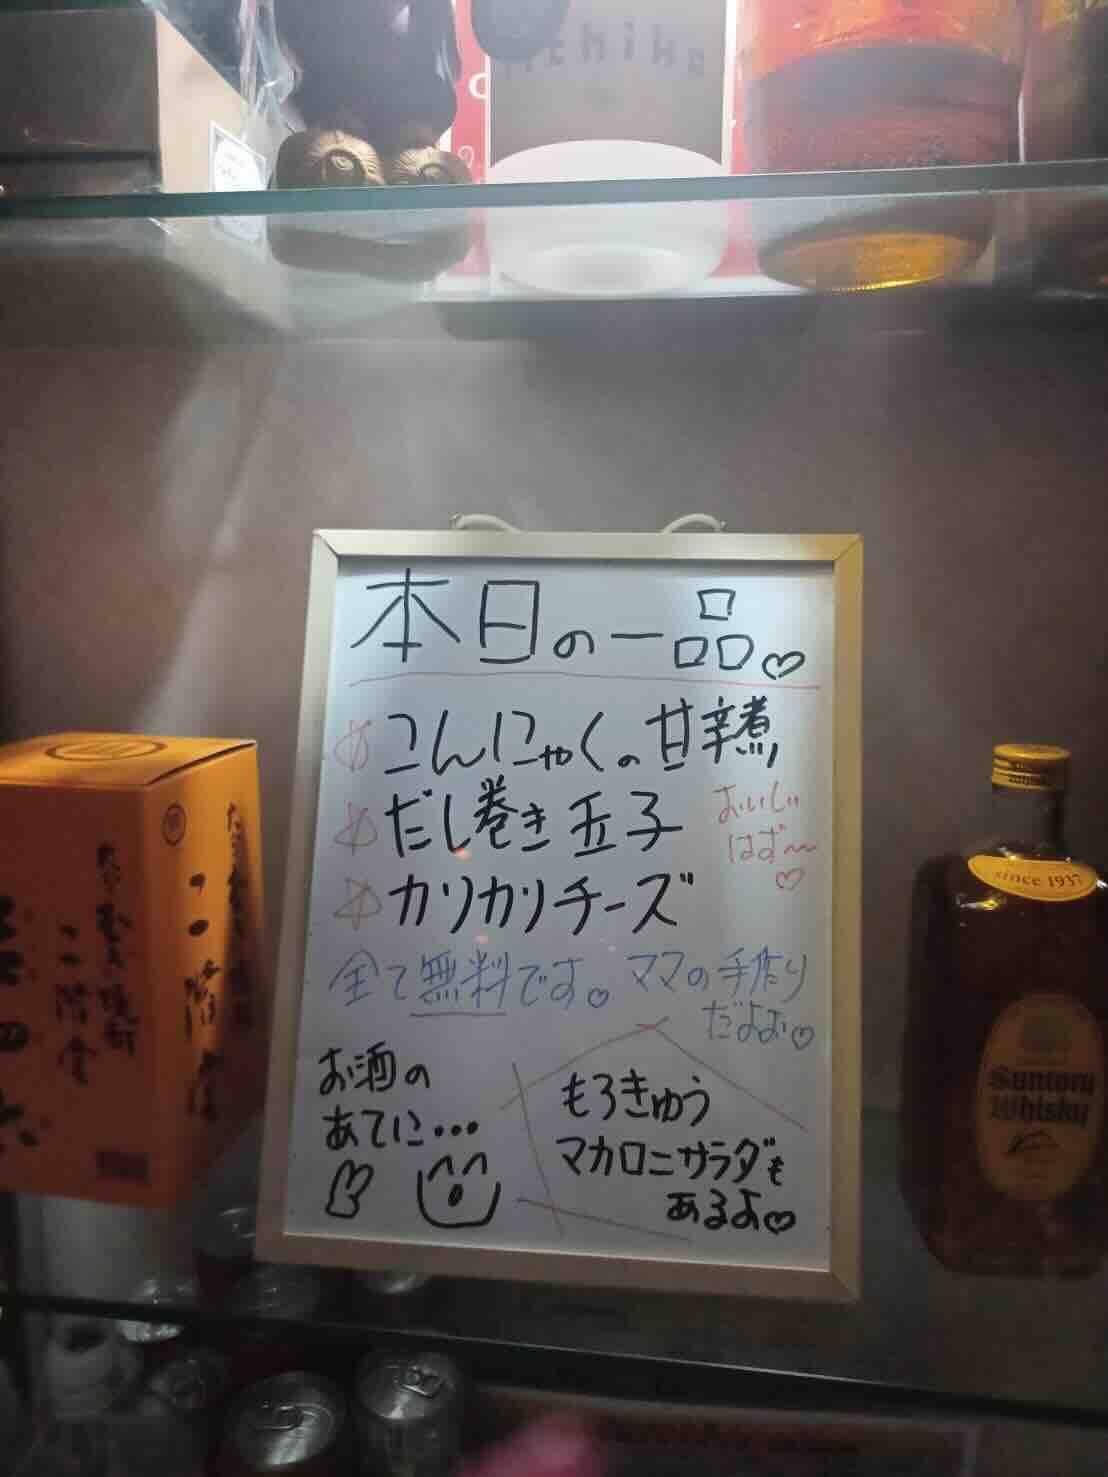 chiha
本日の一品♡
☆こんにゃくの甘辛煮
☆だし巻き玉子
☆カリカリチーズ
おいしい
はず〜
♡
全て無料です。♡ママの手作り
だよぉ♡
お酒の
あてに…
もろきゅう
マカロニサラダも
あるよ♡
二階堂
since 1937
Suntory
Whisky